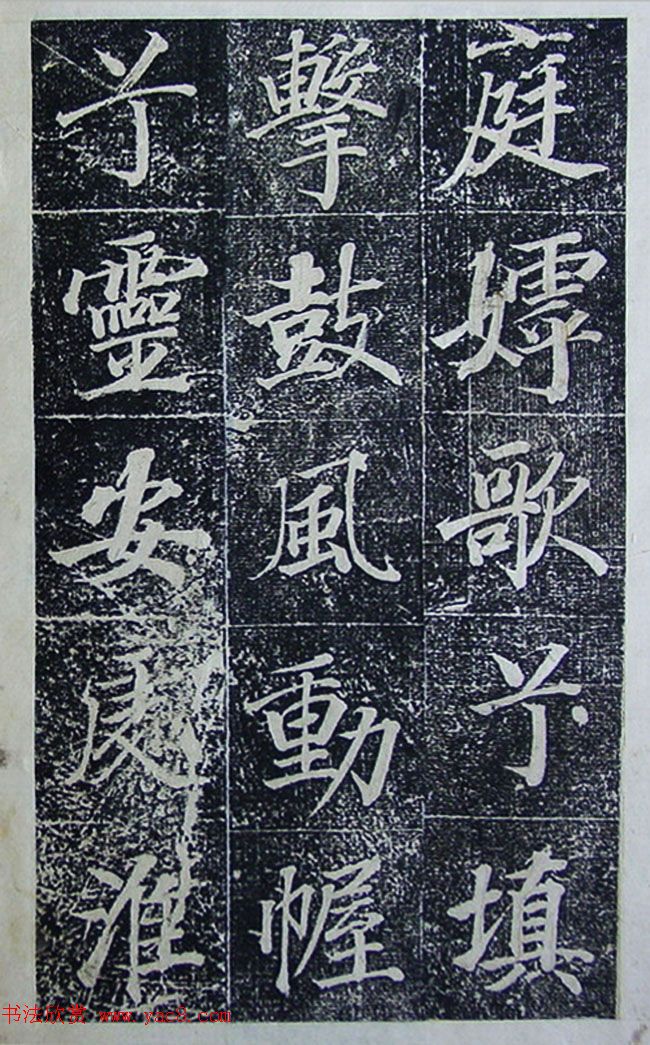 庭嫮歌兮填
擊鼓風動幄
兮靈安淮
书法欣赏 www.yac8.com